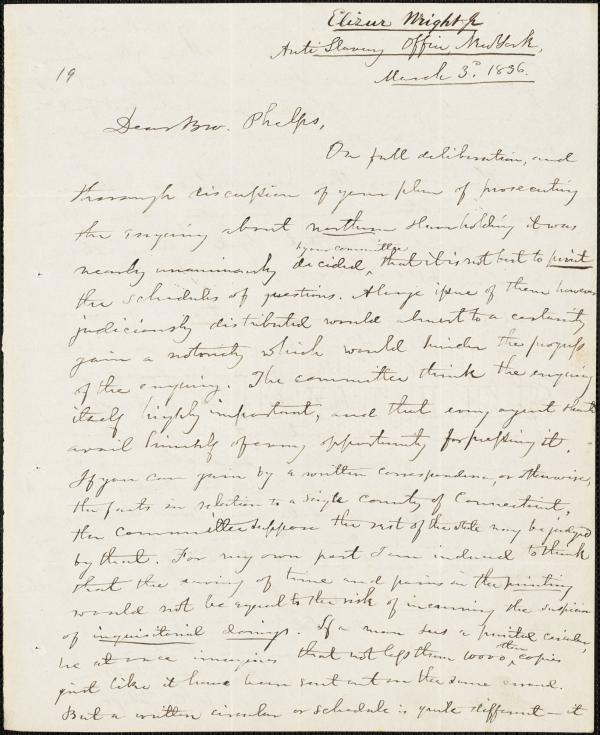 Elizur Wright Jr
Anti Slavery Office, New York,
March 3d. 1836.
19
Dear Bro. Phelps,
On full deliberation, and
thorough discussion of your plan of prosecuting
the enquiry about northern slaveholding it was
by our committee
nearly unanimously decided, that it is not best to print
the schedules of questions. A large issue of them however
judiciously distributed would almost to a certainty
gain a notoriety which would hinder the progress
of the enquiry. The committee think the enquiry
itself highly important, and that every agent should
avail himself of every opportunity for pressing it.
If you can gain by a written correspondence, or otherwise,
the facts in relation to a single county of Connecticut,
the committee suppose the rest of the state may be judged
by that. For my own part I am induced to think
that the saving of time and pains in the printing
would not be equal to the risk of incurring the suspicion
of inquisitorial doings. If a man sees a printed circular,
he at once imagines that not less than 10000 other copies
just like it have been sent out on the same errand.
But a written circular or schedule is quite different - it